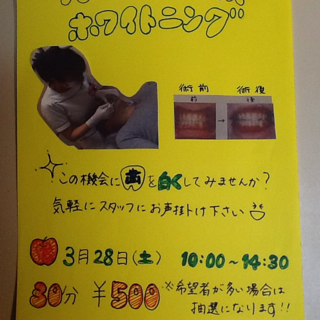 ホワイトニング
術前 術後
前 後
この機会に歯を白くしてみませんか?
気軽にスタッフにお声掛け下さい
3月28日(土) 10:00~14:30
30分 ¥500 ※希望者が多い場合は
抽選になります!!